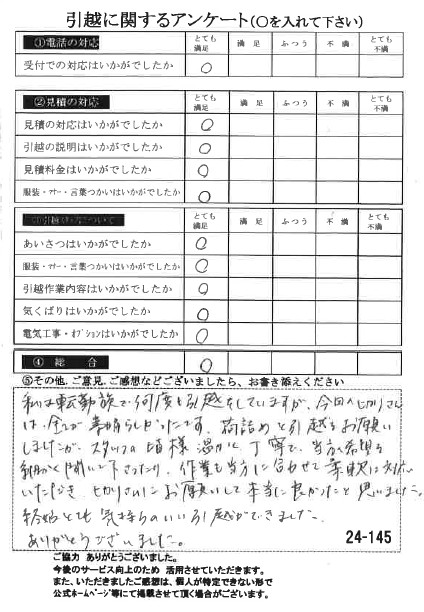 引越に関するアンケート(○を入れて下さい)
①電話の対応 とても満足 満足 ふつう 不満 とても不満
受付での対応はいかがでしたか ○
②見積の対応 とても満足 満足 ふつう 不満 とても不満
見積の対応はいかがでしたか ○
引越の説明はいかがでしたか ○
見積料金はいかがでしたか ○
服装・マナー・言葉つかいはいかがでしたか ○
とても満足 満足 ふつう 不満 とても不満
あいさつはいかがでしたか ○
服装・マナー・言葉つかいはいかがでしたか ○
引越作業内容はいかがでしたか ○
気くばりはいかがでしたか ○
電気工事・オプションはいかがでしたか ○
④ 総 合 ○
⑤その他、ご意見、ご感想などございましたら、お書き添えください
私は転勤族で何度も引越をしていますが、今回のヒカリさん
は、全てが素晴らしかったです。荷詰めと引越をお願い
しましたが、スタッフの皆様、温かく丁寧で、当方の希望を
細かく聞いて下さったり、作業も当方に合わせて柔軟に対応
いただき、ヒカリさんにお願いして本当に良かったと思いました。
終始とても気持ちのいい引越ができました。
ありがとうございました。
24-145
ご協力 ありがとうございました。
今後のサービス向上のため 活用させていただきます。
また、いただきましたご感想は、個人が特定できない形で
公式ホームページ等にて掲載させて頂く場合がございます。